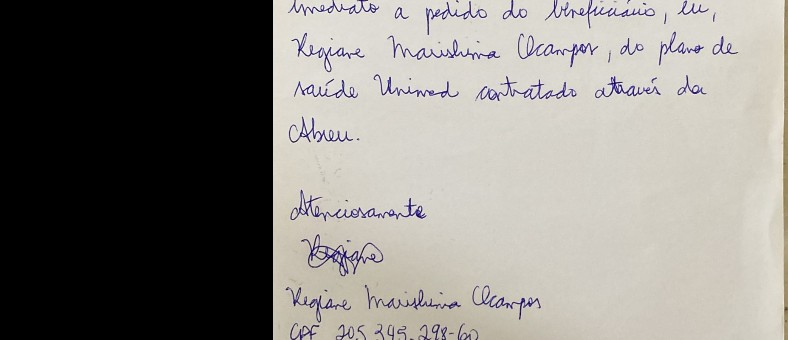 imediato a pedido do beneficiário, eu,
Regiane Marishima Ocampos, do plano de
saúde Unimed contratado através da
Abreu.
Atenciosamente
Regiane
Regiane Marishima Ocampos
CPF 205.345.298-60